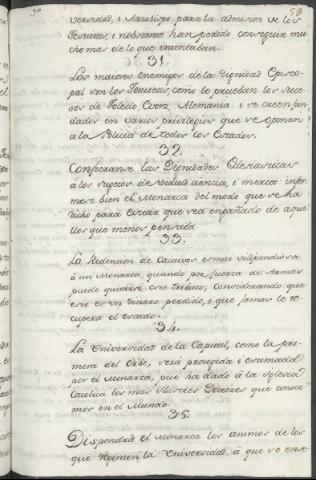 versidad, i Arzobispo para la admision de los
Jesuitas, i nobstante han podido conseguir mu
cho mas de lo que intentaban.
31.
Los maiores enemigos de la Dignidad Episco-
pal son los Jesuitas, como lo prueban los suce-
sos de Toledo Evora, Alemania: i se creen fun-
dados en varios privilegios que se oponen
a la Policia de todos los Estados.
32.
Confieranse las Dignidades Eclesiasticas
a los sugetos de virtud, ciencia, i merito: infor-
mese bien el Monarca del modo que se ha
dicho, para evitar que sea engañado de aque-
llos que menos pensada.
33.
La Redencion de Cautivos es mui dispendiosa
à un Monarca, quando por fuerza de Armas
puede quitarse este tributo; considerando que
este es un dinero perdido, i que jamas le re-
cupera el estado.
34.
La Universidad de la Capital, como la pri-
mera del Orbe, será protegida i estimada
por el Monarca, pues ha dado à la Iglesia
Catolica los mas ilustres Doctores que conoce-
mos en el Mundo.
35.
Dispondrà el Monarca los animos de los
que Regenten la Universidad, à que se ense